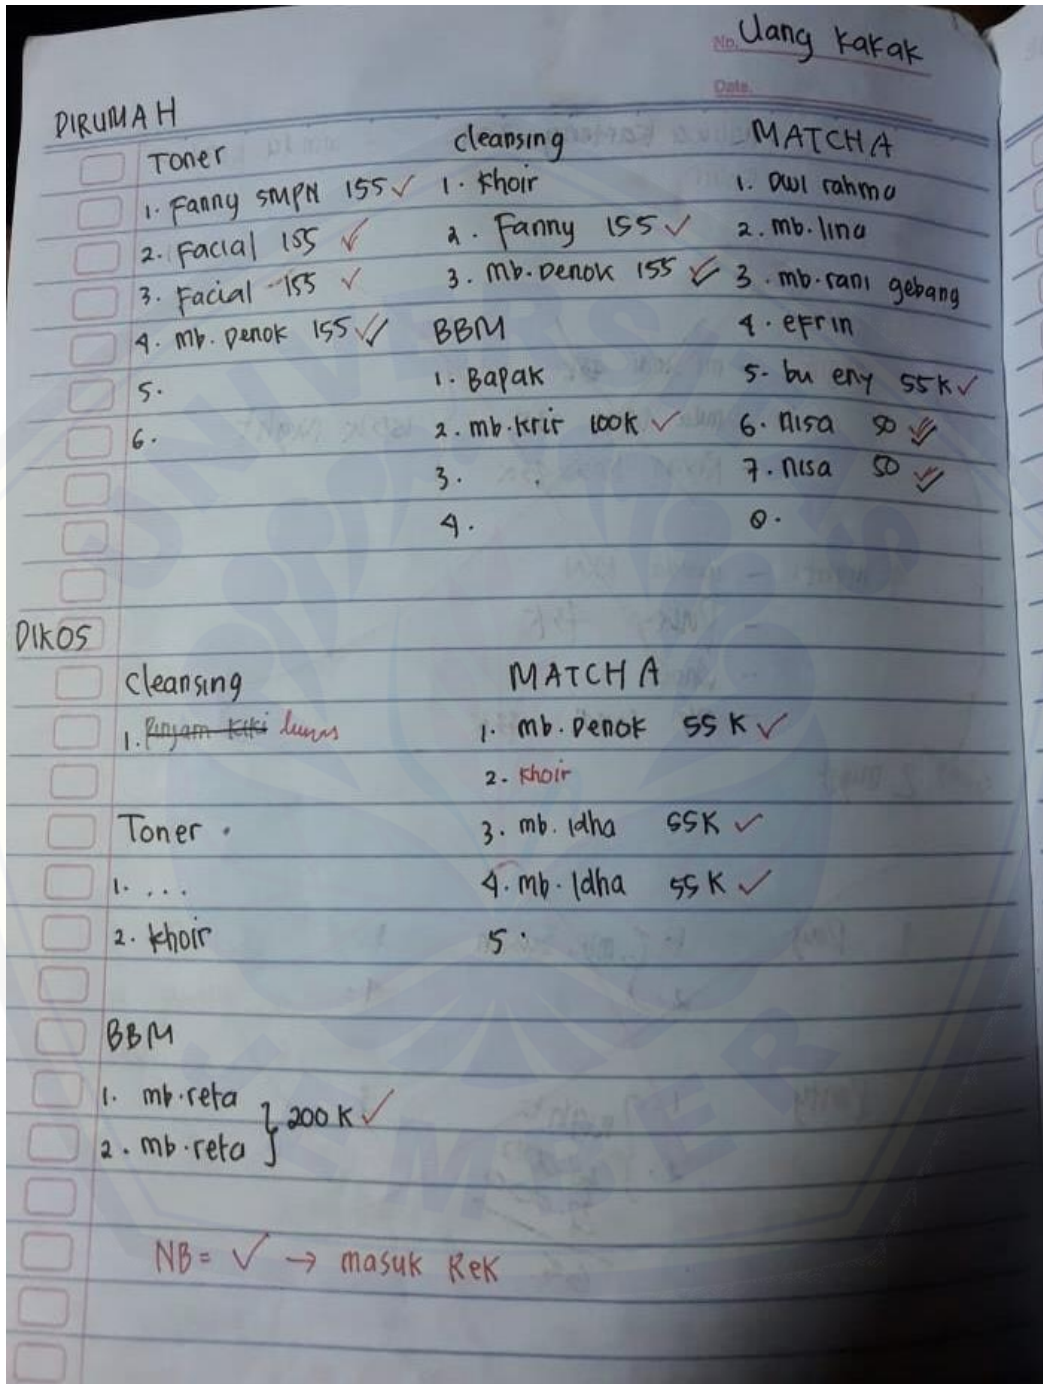 No. Uang kakak
Date.
DIRUMAH
Toner
1. Fanny SMPN 155 ✓
2. Facial 155 ✓
3. Facial 155 ✓
4. mb. Denok 155 ✓
5.
6.
cleansing
1. Khoir
2. Fanny 155 ✓
3. mb. Denok 155 ✓
BBM
1. Bapak
2. mb. krir 100K ✓
3.
4.
MATCHA
1. awl rahma
2. mb. lina
3. mb. rani gebang
4. efrin
5. bu eny 55K ✓
6. nisa 50 ✓
7. nisa 50 ✓
8.
DIKOS
cleansing
1. Pinjam Kiki lunas
Toner .
1. ...
2. khoir
BBM
1. mb. reta
2. mb. reta } 200 K ✓
MATCHA
1. mb. Denok 55 K ✓
2. Khoir
3. mb. Idha 55K ✓
4. mb. Idha 55 K ✓
5.
NB = ✓ → masuk Rek
UNIVERSITAS
JEMBER